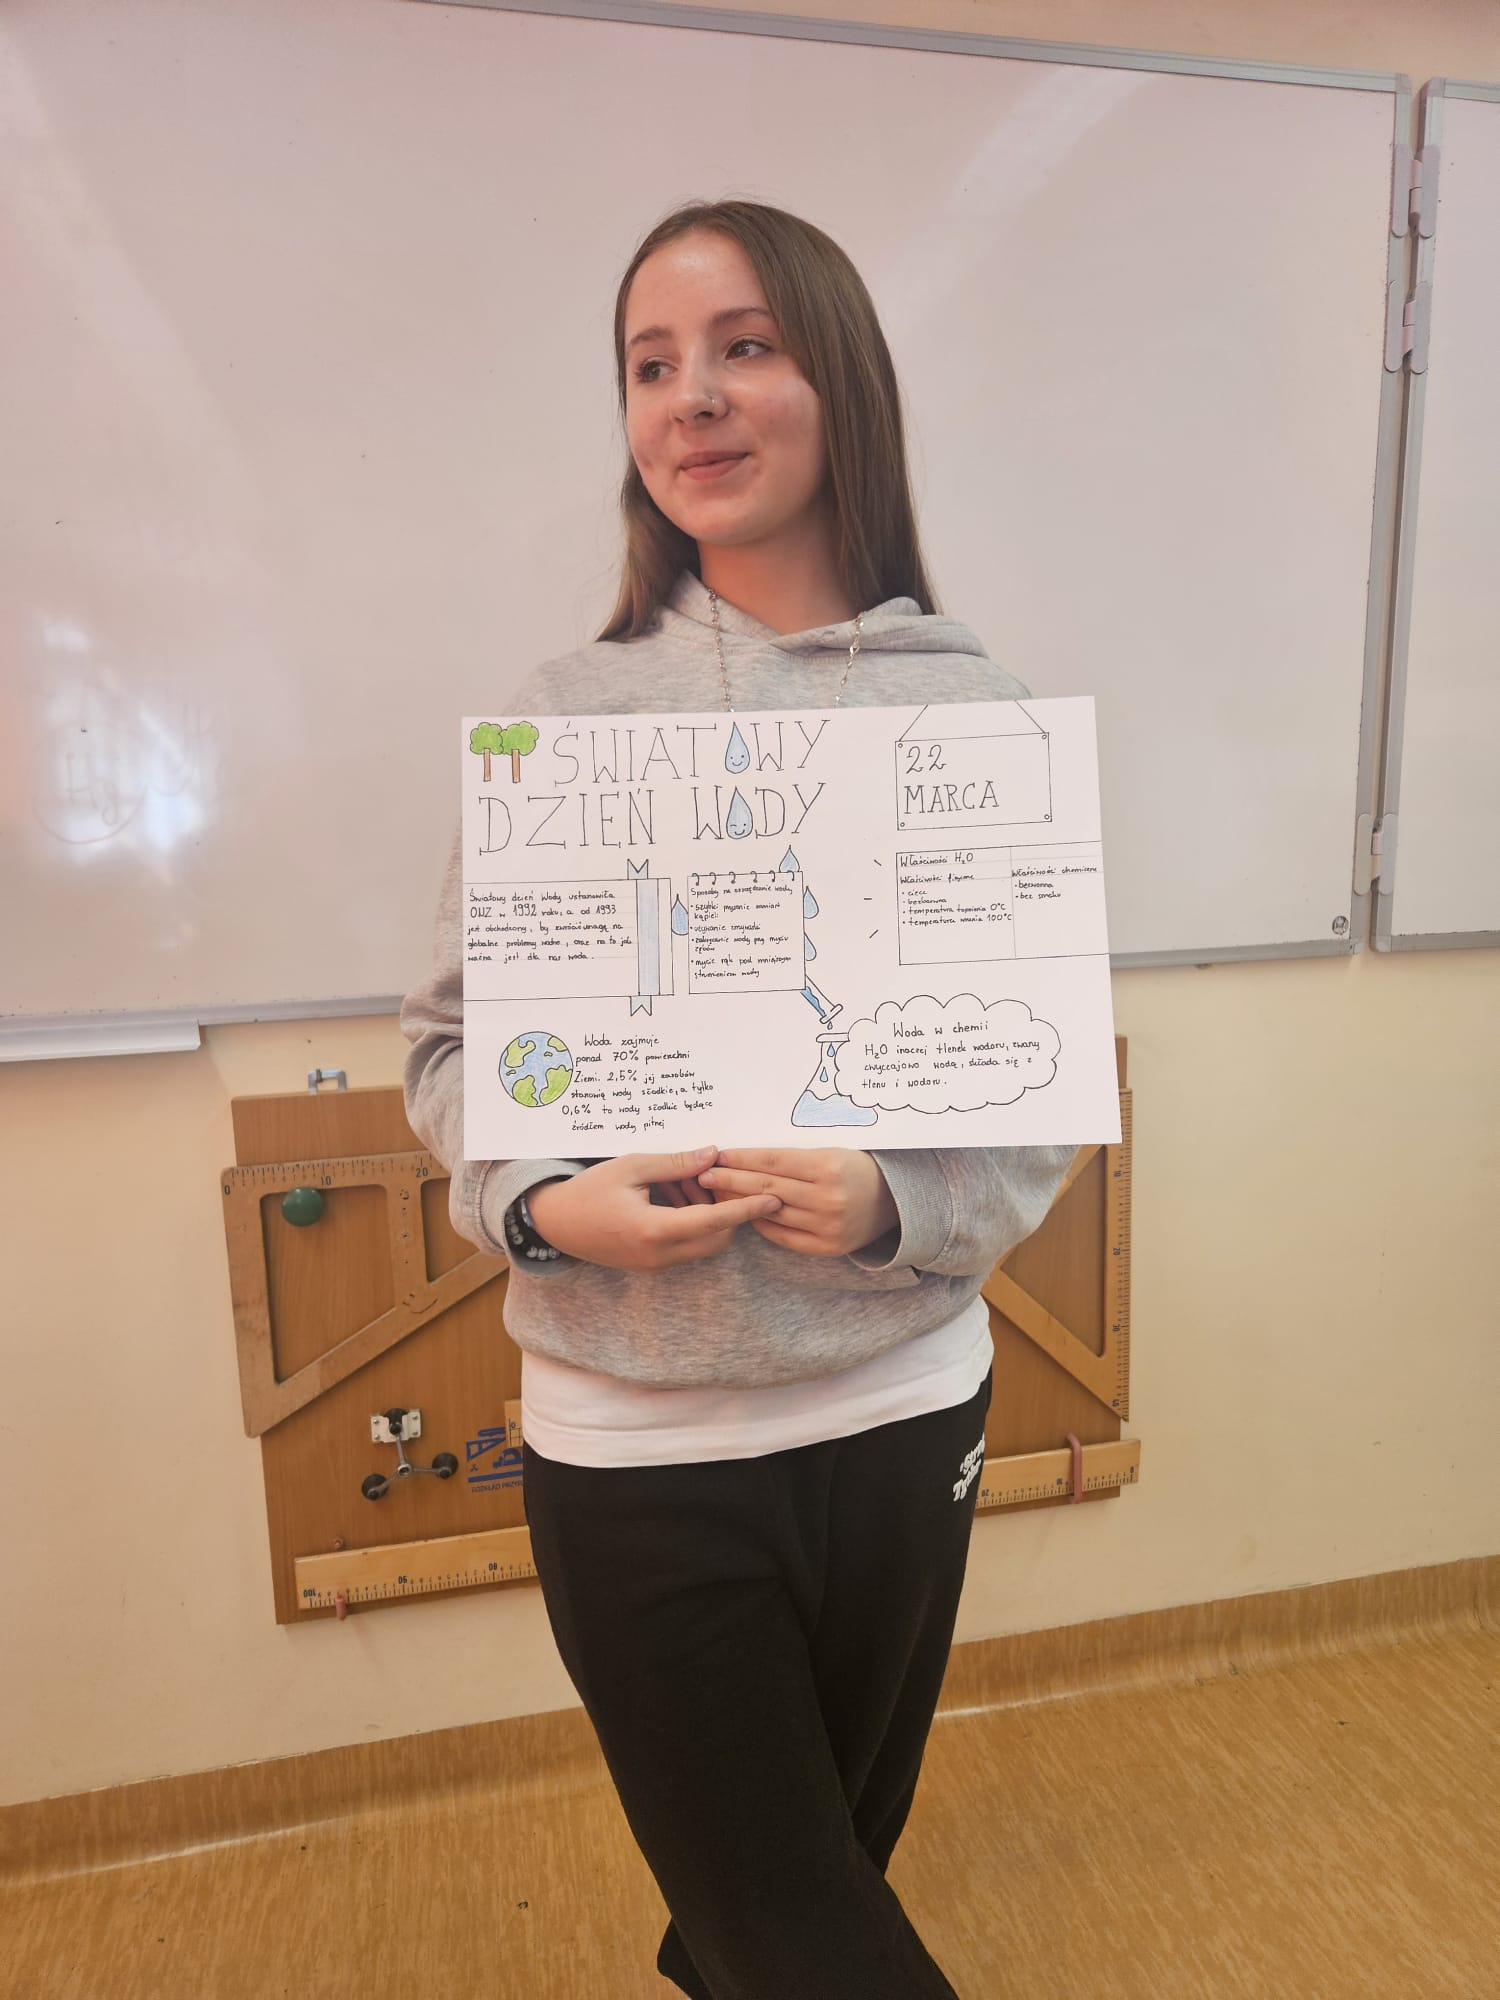 ŚWIATOWY
DZIEŃ WODY
22
MARCA
Światowy dzień Wody ustanowiła
ONZ w 1992 roku, a od 1993
jest obchodzony, by zwrócić uwagę na
globalne problemy wodne, oraz na to jak
ważna jest dla nas woda.
Sposoby na oszczędzanie wody
• szybki prysznic zamiast
kąpieli
• używanie zmywarki
• zakręcanie wody przy myciu
zębów
• mycie rąk pod mniejszym
strumieniem wody
Właściwości H₂O
Właściwości fizyczne
• ciecz
• bezbarwna
• temperatura topnienia 0°C
• temperatura wrzenia 100°C
Właściwości chemiczne
• bezwonna
• bez smaku
Woda zajmuje
ponad 70% powierzchni
Ziemi. 2,5% jej zasobów
stanowią wody słodkie, a tylko
0,6% to wody słodkie będące
źródłem wody pitnej
Woda w chemii
H₂O inaczej tlenek wodoru, zwany
zwyczajowo wodą, składa się z
tlenu i wodoru.
0 10 20
100 90 80
20 10 0